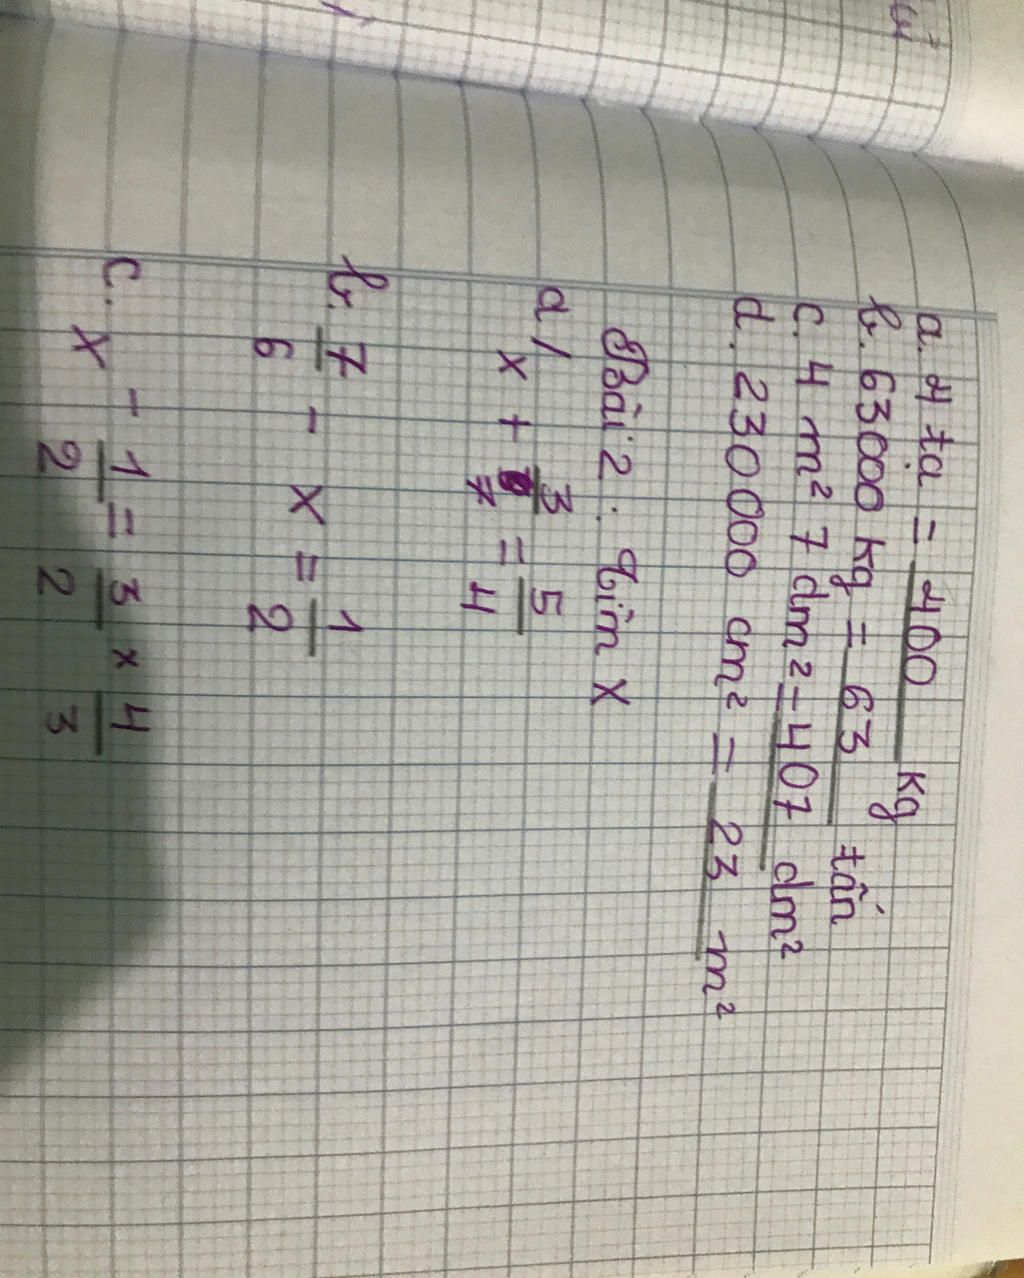 a. 4 tạ = 400 kg
b. 63000 kg = 63 tấn
c. 4 m² 7 dm² = 407 dm²
d. 230 000 cm² = 23 m²
Bài 2: Tìm x
a/ x + 3/7 = 5/4
b. 7/6 - x = 1/2
c. x - 1/2 = 3/2 x 4/3